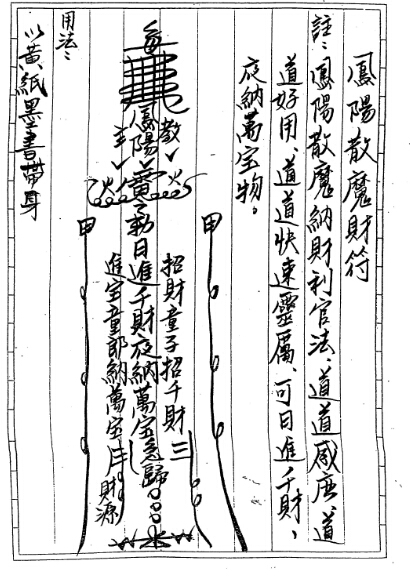 鳳陽散魔財符
註：鳳陽散魔納財利官法、道道感應、道
道好用、道道快速靈厲、可日進千財，
夜納萬宝物。
招財童子招千財
教主
鳳陽黃勅日進千財夜納萬宝急歸
進宝童郎納萬宝
財源
甲
甲
用法：
以黃紙墨書帶身